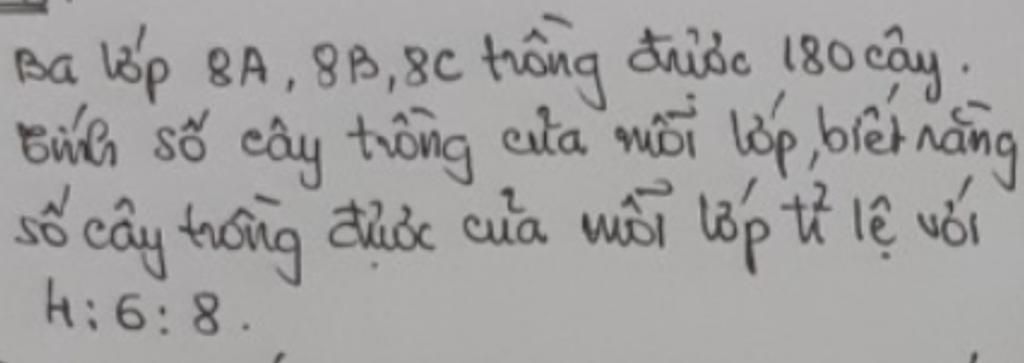 Ba lớp 8A, 8B, 8C trồng được 180 cây.
Tính số cây trồng của mỗi lớp, biết rằng
số cây trồng được của mỗi lớp tỉ lệ với
4 : 6 : 8.